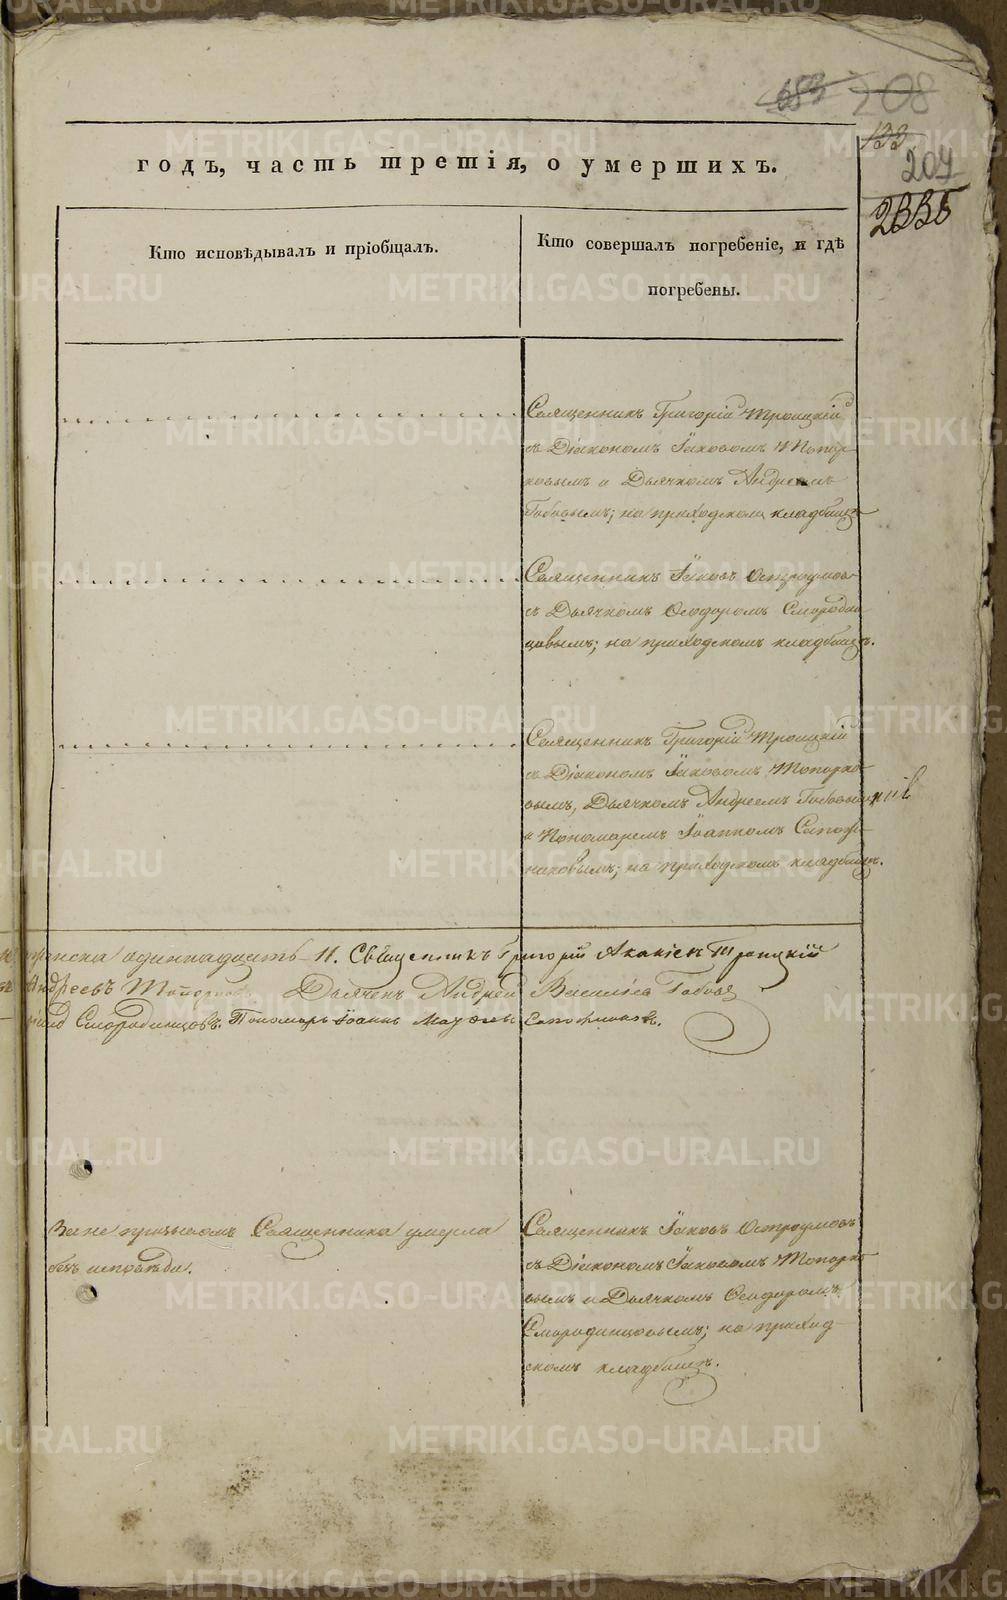 683 208
133
207
233Б
годъ, часть третія, о умершихъ.
Кто исповѣдывалъ и пріобщалъ.
Кто совершалъ погребеніе, и гдѣ
погребены.
Священникъ Григорій Троицкій
съ Діакономъ Іаковомъ Топор-
ковымъ и Дьячкомъ Андреемъ
Бабовымъ; на приходскомъ кладбищѣ
Священникъ Іаковъ Остроумовъ
съ Дьячкомъ Ѳеодоромъ Смородин
цовымъ; на приходскомъ кладбищѣ.
Священникъ Григорій Троицкій
съ Діакономъ Іаковомъ Топорко-
вымъ, Дьячкомъ Андреемъ
и Пономаремъ Іоанномъ Сапож-
никовымъ; на приходскомъ кладбищѣ.
одиннадцать 11. Священникъ Григорій Троицкій
Андреевъ Топорковъ Дьячекъ Андрей Васильевъ
Смородинцовъ. Пономарь Іоаннъ Сапожниковъ.
За не призывомъ Священника умерла
безъ исповѣди.
Священникъ Іаковъ Остроумовъ
съ Діакономъ Іаковомъ Топорко
вымъ и Дьячкомъ Ѳеодоромъ
Смородинцовымъ; на приход-
скомъ кладбищѣ.
METRIKI.GASO-URAL.RU